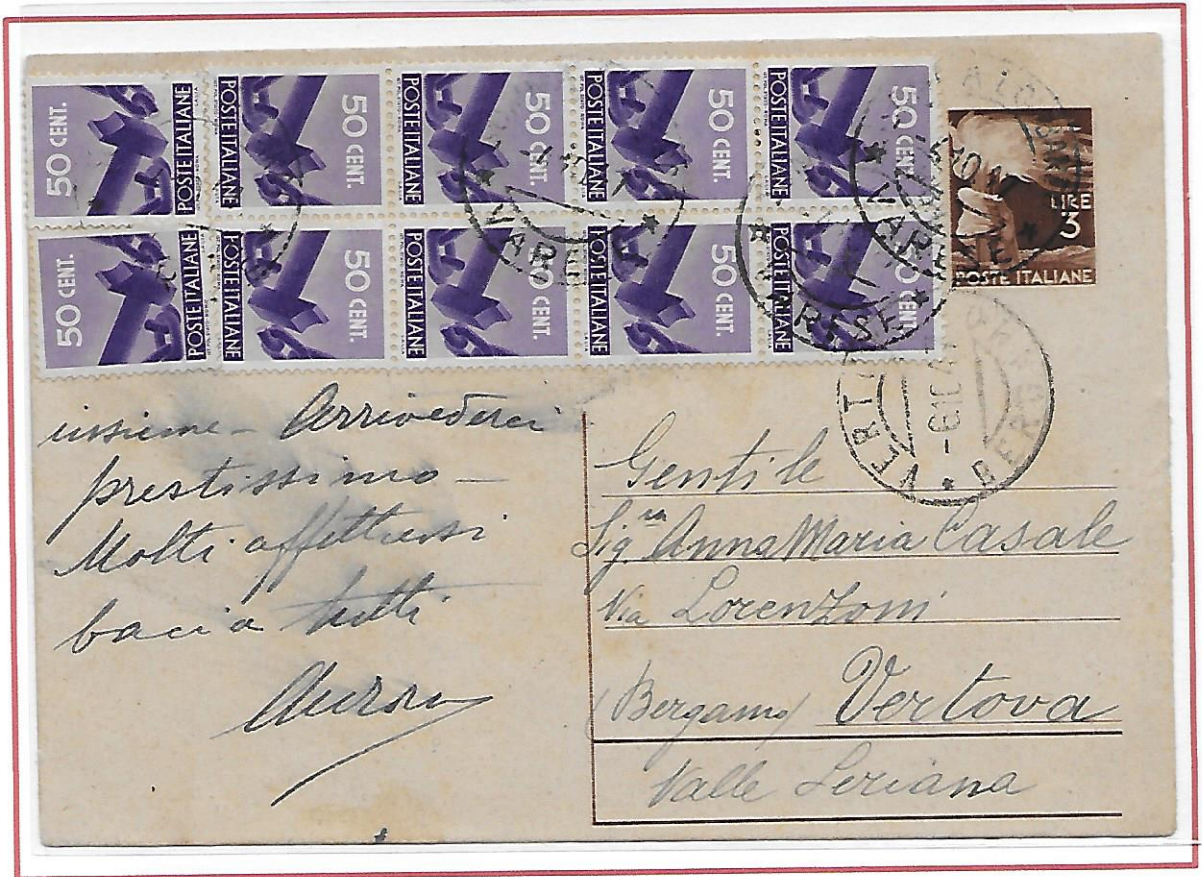 50 CENT. POSTE ITALIANE
POSTE ITALIANE 50 CENT.
POSTE ITALIANE 50 CENT.
POSTE ITALIANE 50 CENT.
POSTE ITALIANE 50 CENT.
50 CENT. POSTE ITALIANE
POSTE ITALIANE 50 CENT.
POSTE ITALIANE 50 CENT.
POSTE ITALIANE 50 CENT.
POSTE ITALIANE 50 CENT.
LIRE
3
POSTE ITALIANE
VARESE
VARESE
insieme - Arrivederci
prestissimo -
Molti affettuosi
baci a tutti
Gentile
Sig.ra Anna Maria Casale
Via Lorenzoni
(Bergamo) Vertova
Valle Seriana